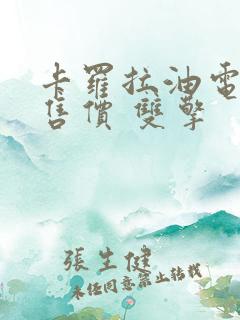 卡羅拉油電
售價 雙擎
張生健
未任同意禁止轉載